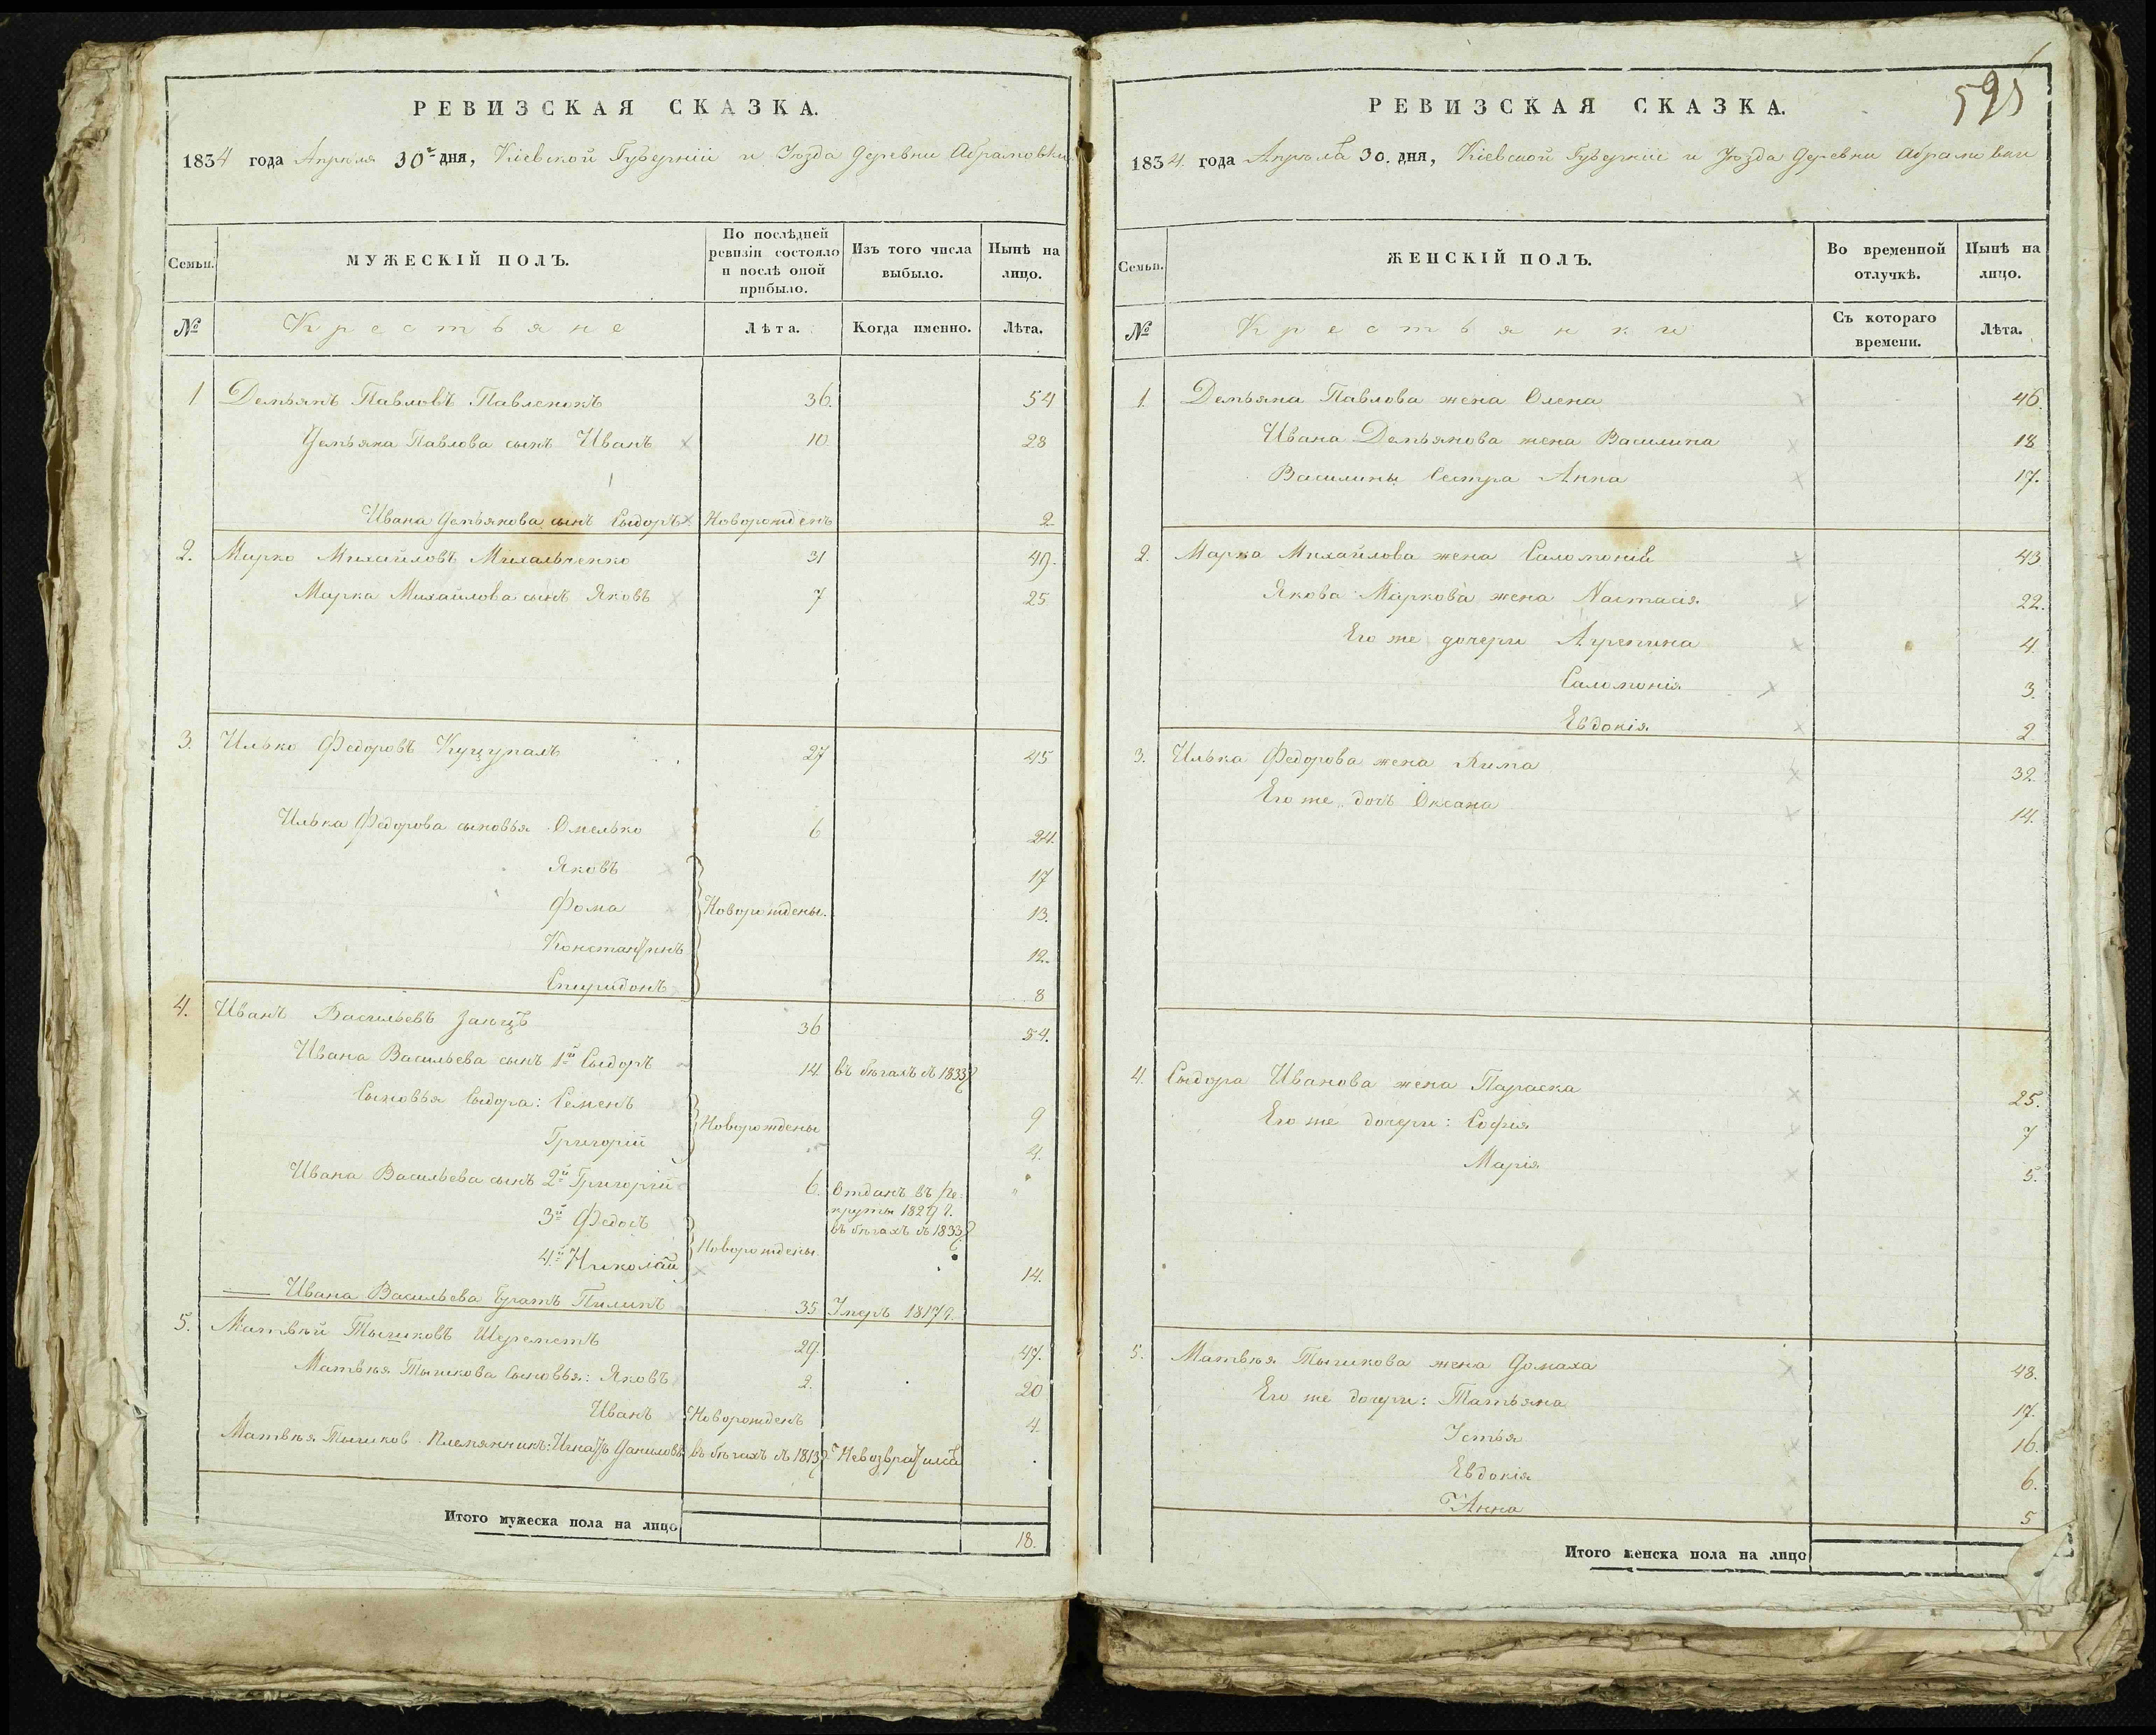 РЕВИЗСКАЯ СКАЗКА.
1834 года Апреля 30го дня, Кіевской Губерніи и Уезда деревни Абрамовки
Семьи.
МУЖЕСКІЙ ПОЛЪ.
По послѣдней ревизіи состояло и послѣ оной прибыло.
Изъ того числа выбыло.
Нынѣ на лицо.
№
Крестьяне
Лѣта.
Когда именно.
Лѣта.
1 Демьянъ Павловъ Павленокъ 36. 54
Демьяна Павлова сынъ Иванъ 10 28
Ивана Демьянова сынъ Сыдоръ Новорожденъ 2
2. Марко Михайловъ Михальченко 31 49.
Марка Михайлова сынъ Яковъ 7 25
3. Илько Федоровъ Куцупалъ 27 45
Илька Федорова сыновья Омелько 6 24.
Яковъ 17
Фома Новорождены. 13.
Константинъ 12.
Спиридонъ 8
4. Иванъ Васильевъ Заяцъ 36 54.
Ивана Васильева сынъ 1й Сыдоръ 14 въ бѣгахъ съ 1833г
Сыновья Сыдора: Семенъ 9
Новорождены
Григорій 4.
Ивана Васильева сынъ 2й Григорій 6. Отданъ въ ре:
круты 1829 г.
3й Федосъ въ бѣгахъ съ 1833г
Новорождены.
4й Николай 14.
Ивана Васильева братъ Пилипъ 35 Умеръ 1817г.
5. Матвѣй Тышковъ Шереметъ 29. 47.
Матвѣя Тышкова Сыновья: Яковъ 2. 20
Иванъ Новорожденъ 4.
Матвѣя Тышков. Племянникъ: Игнатъ Даниловъ въ бѣгахъ съ 1813г. Невозвратился
Итого мужеска пола на лицо 18.
595
РЕВИЗСКАЯ СКАЗКА.
1834. года Апреля 30. дня, Кіевской Губерніи и Уезда деревни Абрамовки
Семьи.
ЖЕНСКІЙ ПОЛЪ.
Во временной отлучкѣ.
Нынѣ на лицо.
№
Крестьянки
Съ котораго времени.
Лѣта.
1. Демьяна Павлова жена Олена 46.
Ивана Демьянова жена Василина 18
Василины Сестра Анна 17.
2. Марка Михайлова жена Саломонія 43
Якова Маркова жена Настасія 22.
Его же дочери Агрепина 4
Саломонія 3.
Евдокія 2
3. Илька Федорова жена Яима 32.
Его же дочь Оксана 14.
4. Сыдора Иванова жена Параска 25.
Его же дочери: Софія 7
Марія 5.
5. Матвѣя Тышкова жена Домаха 48.
Его же дочери: Татьяна 17.
Устья 16.
Евдокія 6.
Анна 5
Итого женска пола на лицо